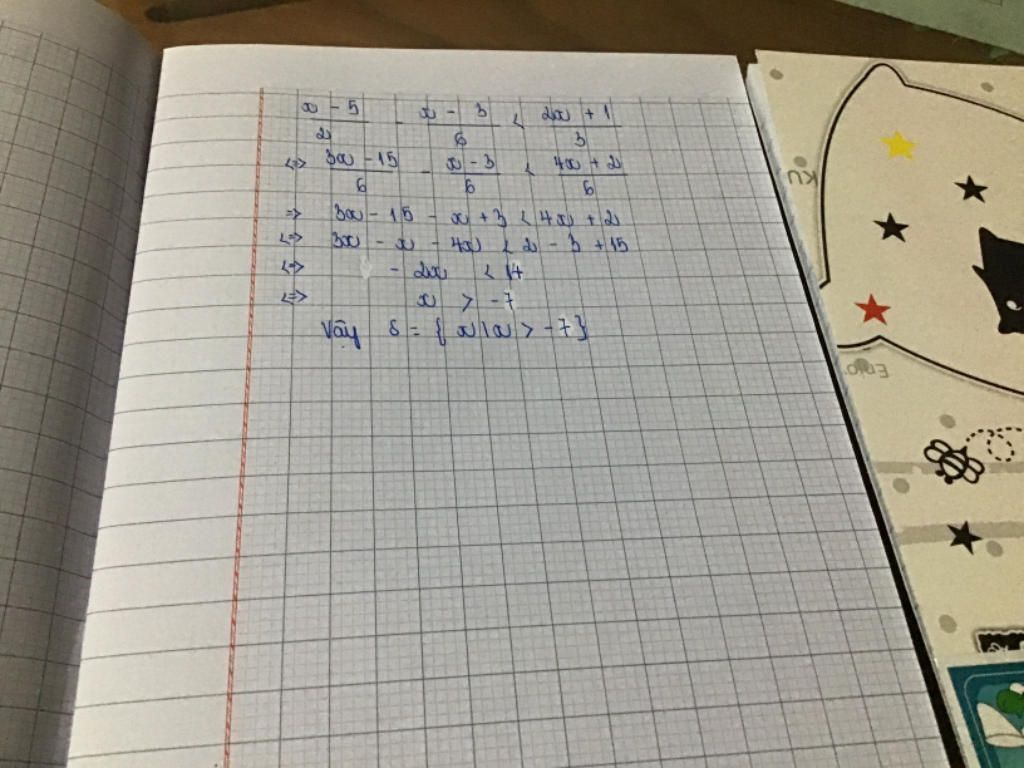 x - 5 / 2 - x - 3 / 6 < 2x + 1 / 3
<=> 3x - 15 / 6 - x - 3 / 6 < 4x + 2 / 6
=> 3x - 15 - x + 3 < 4x + 2
<=> 3x - x - 4x < 2 - 3 + 15
<=> - 2x < 14
<=> x > -7
Vậy S = { x | x > -7 }